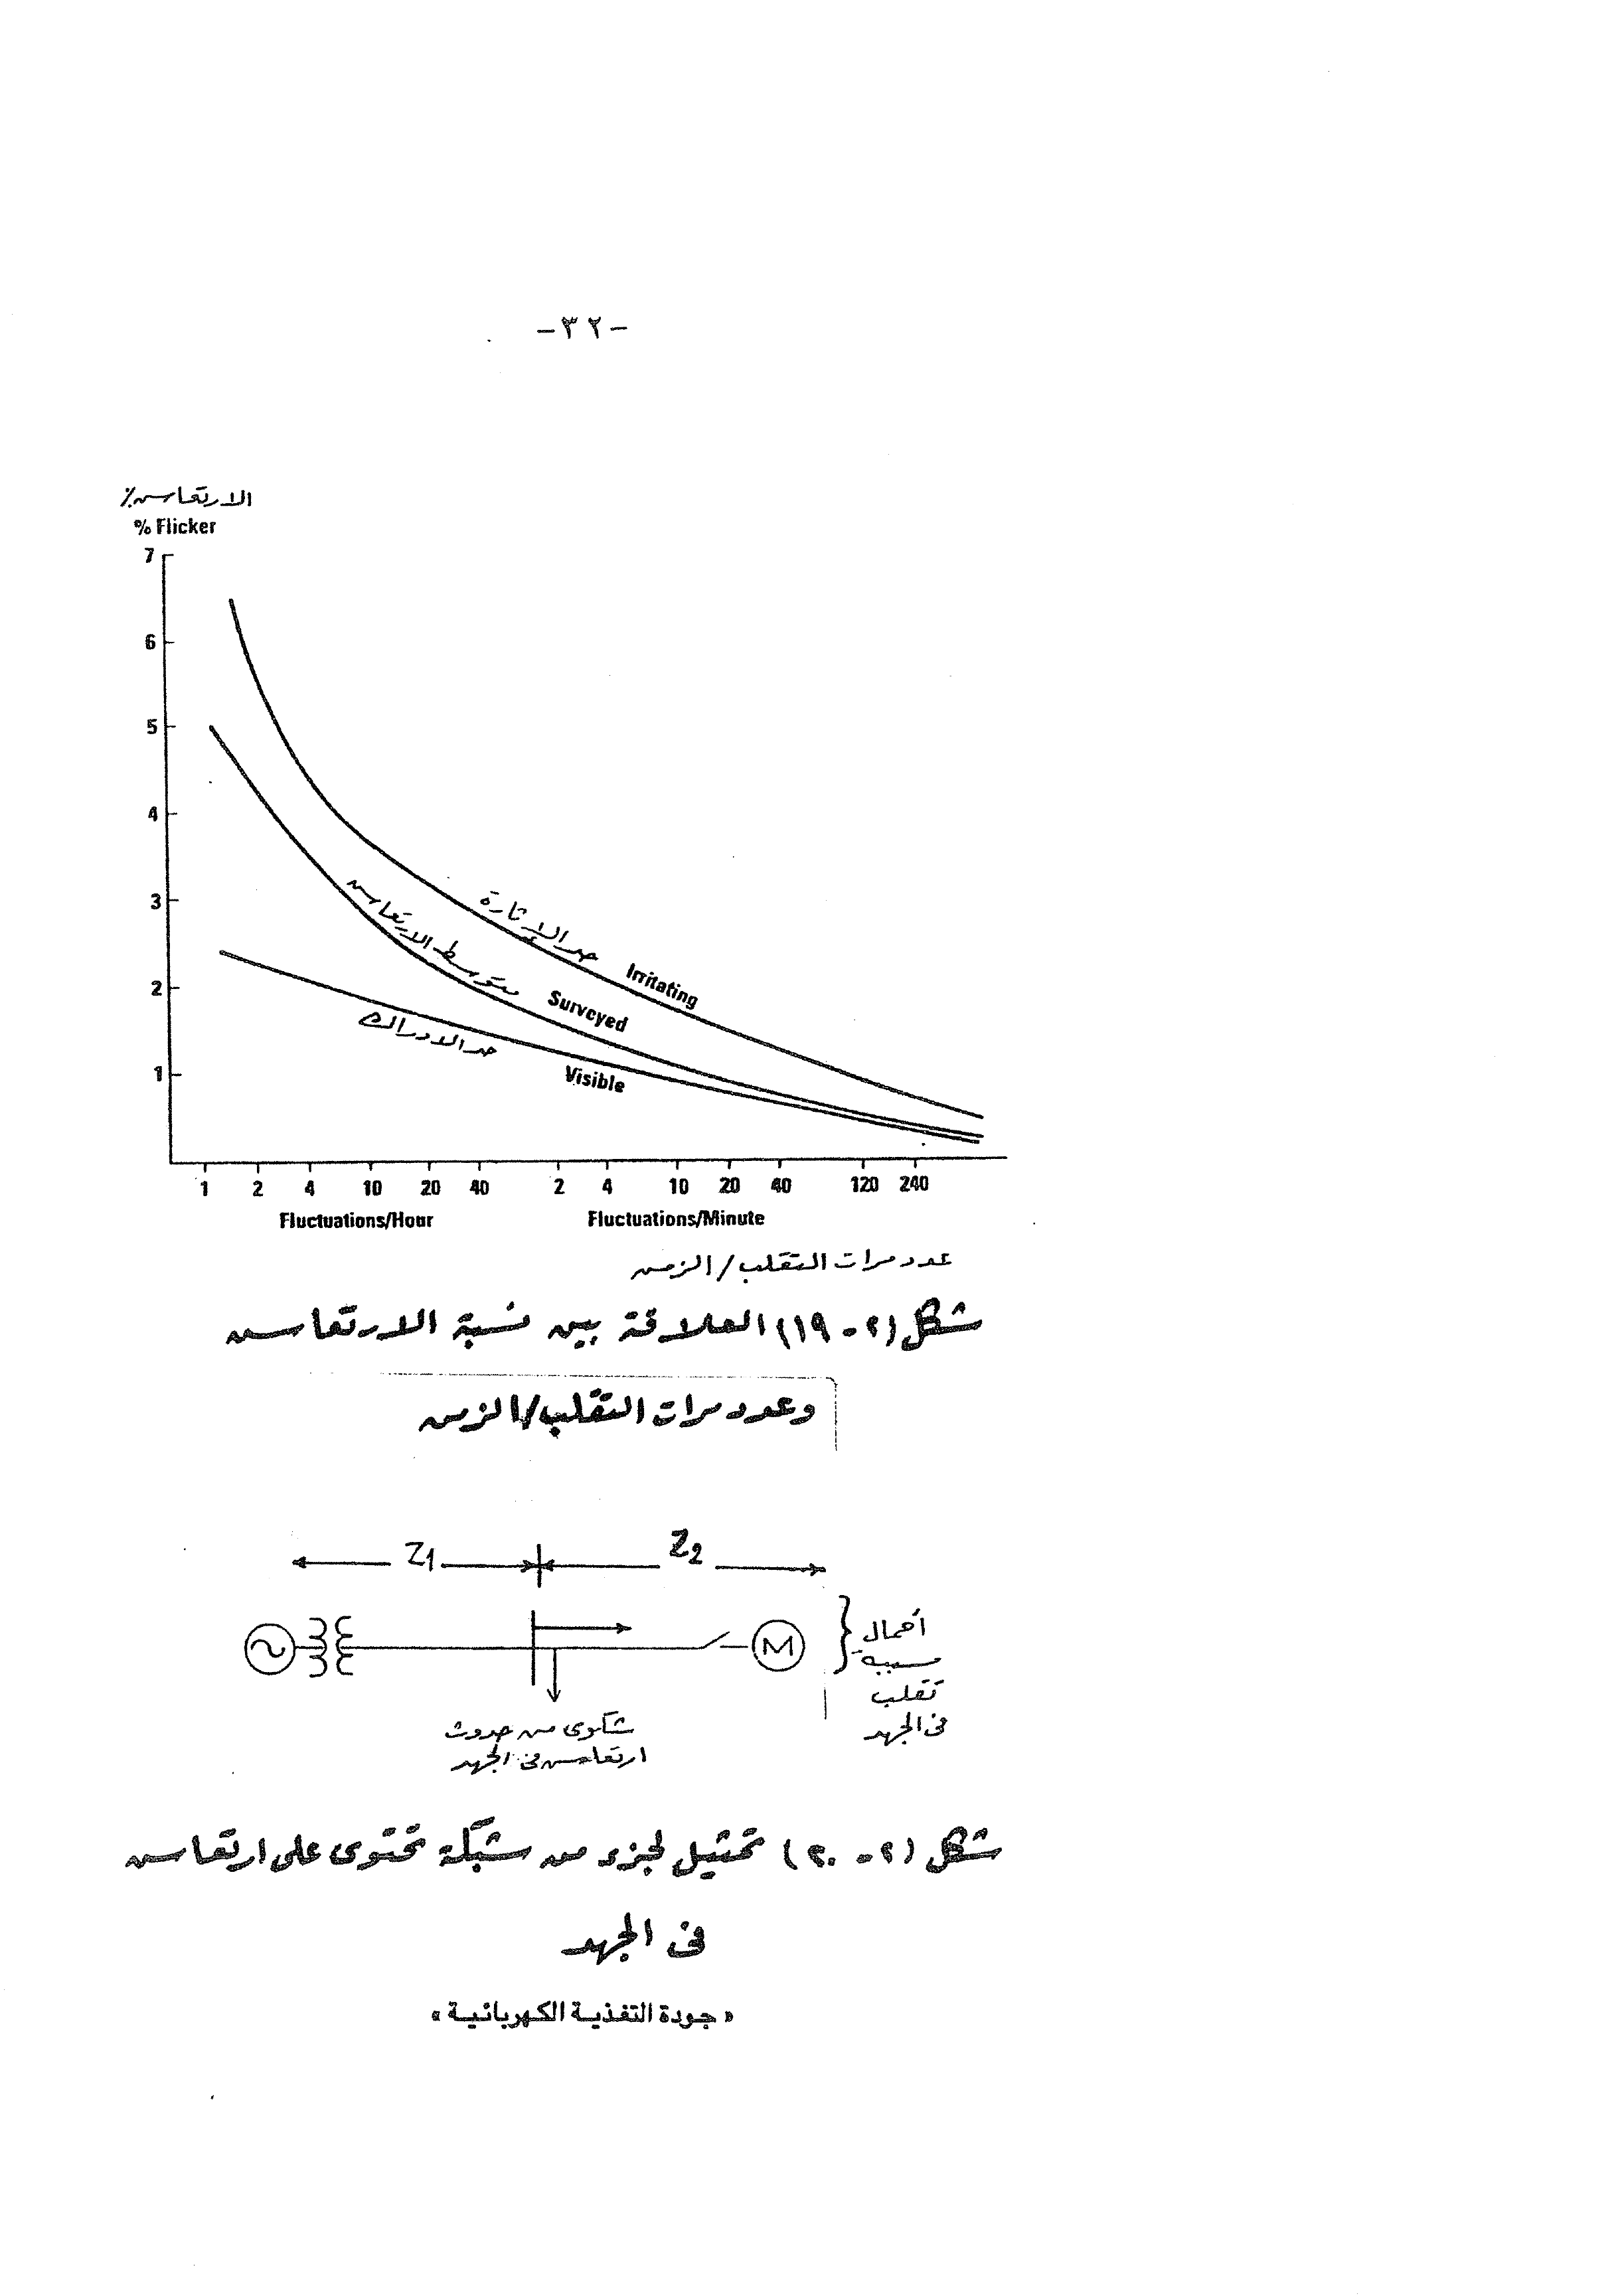 -٣٢-
الارتعاش٪
% Flicker
7
6
5
4
3
2
1
حد الاثارة
Irritating
متوسط الارتعاش
Surveyed
حد الادراك
Visible
1 2 4 10 20 40 2 4 10 20 40 120 240
Fluctuations/Hour Fluctuations/Minute
عدد مرات التقلب/الزمن
شكل (٢-١٩) العلاقة بين نسبة الارتعاش
وعدد مرات التقلب/الزمن
Z1 Z2
M
أحمال
مسببه
تقلب
فى الجهد
شكوى من حدوث
ارتعاش فى الجهد
شكل (٢-٢٠) تمثيل لجزء من شبكة تحتوى على ارتعاش
فى الجهد
«جودة التغذية الكهربائية»